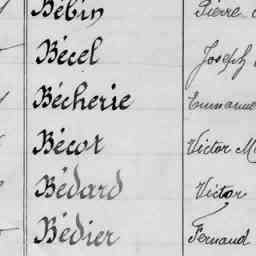 Bébin Pierre
Bécel Joseph
Bécherie Emmanuel
Bécot Victor
Bédard Victor
Bédier Fernand